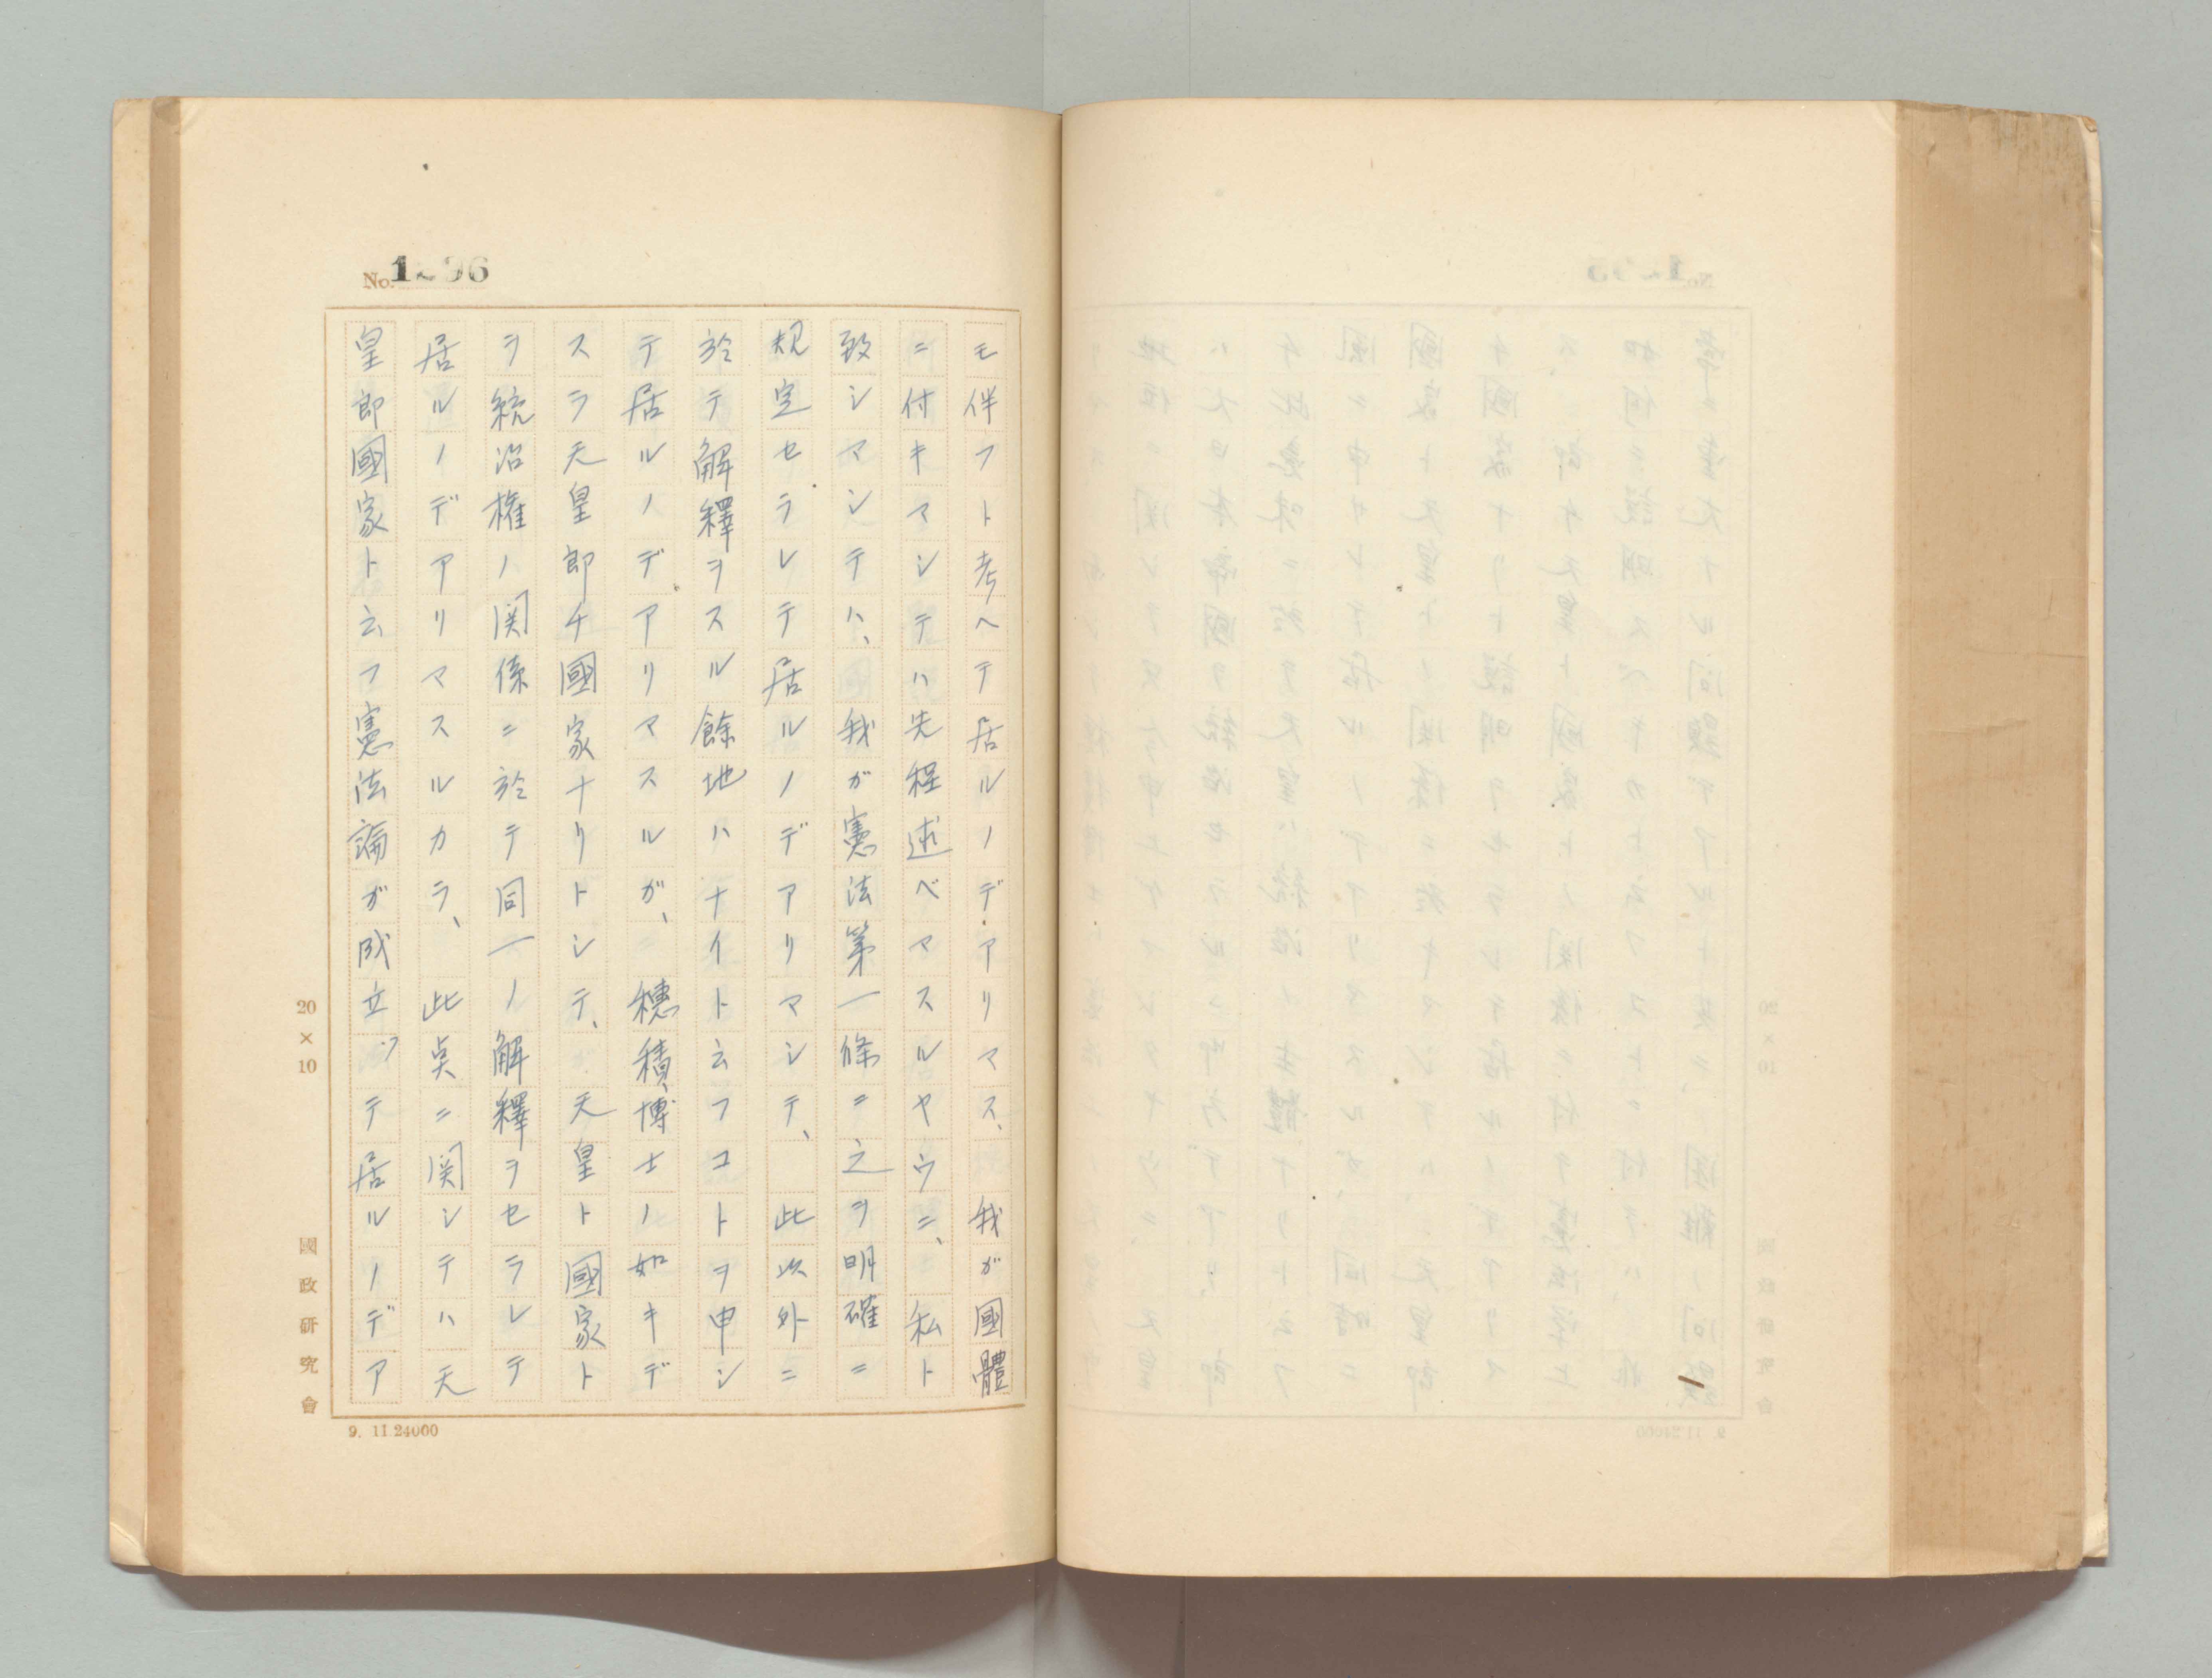 No. 1296
モ伴フト考ヘテ居ルノデアリマス、我ガ國體
ニ付キマシテハ先程述ベマスルヤウニ、私ト
致シマシテハ、我ガ憲法第一條ニ之ヲ明確ニ
規定セラレテ居ルノデアリマシテ、此以外ニ
於テ解釋ヲスル餘地ハナイト云フコトヲ申シ
テ居ルノデアリマスルガ、穗積博士ノ如キデ
スラ天皇即チ國家ナリトシテ、天皇ト國家ト
ヲ統治權ノ関係ニ於テ同一ノ解釋ヲセラレテ
居ルノデアリマスルカラ、此点ニ関シテハ天
皇即國家ト云フ憲法論ガ成立ッテ居ルノデア
20×10
國政研究會
9. 11.24000